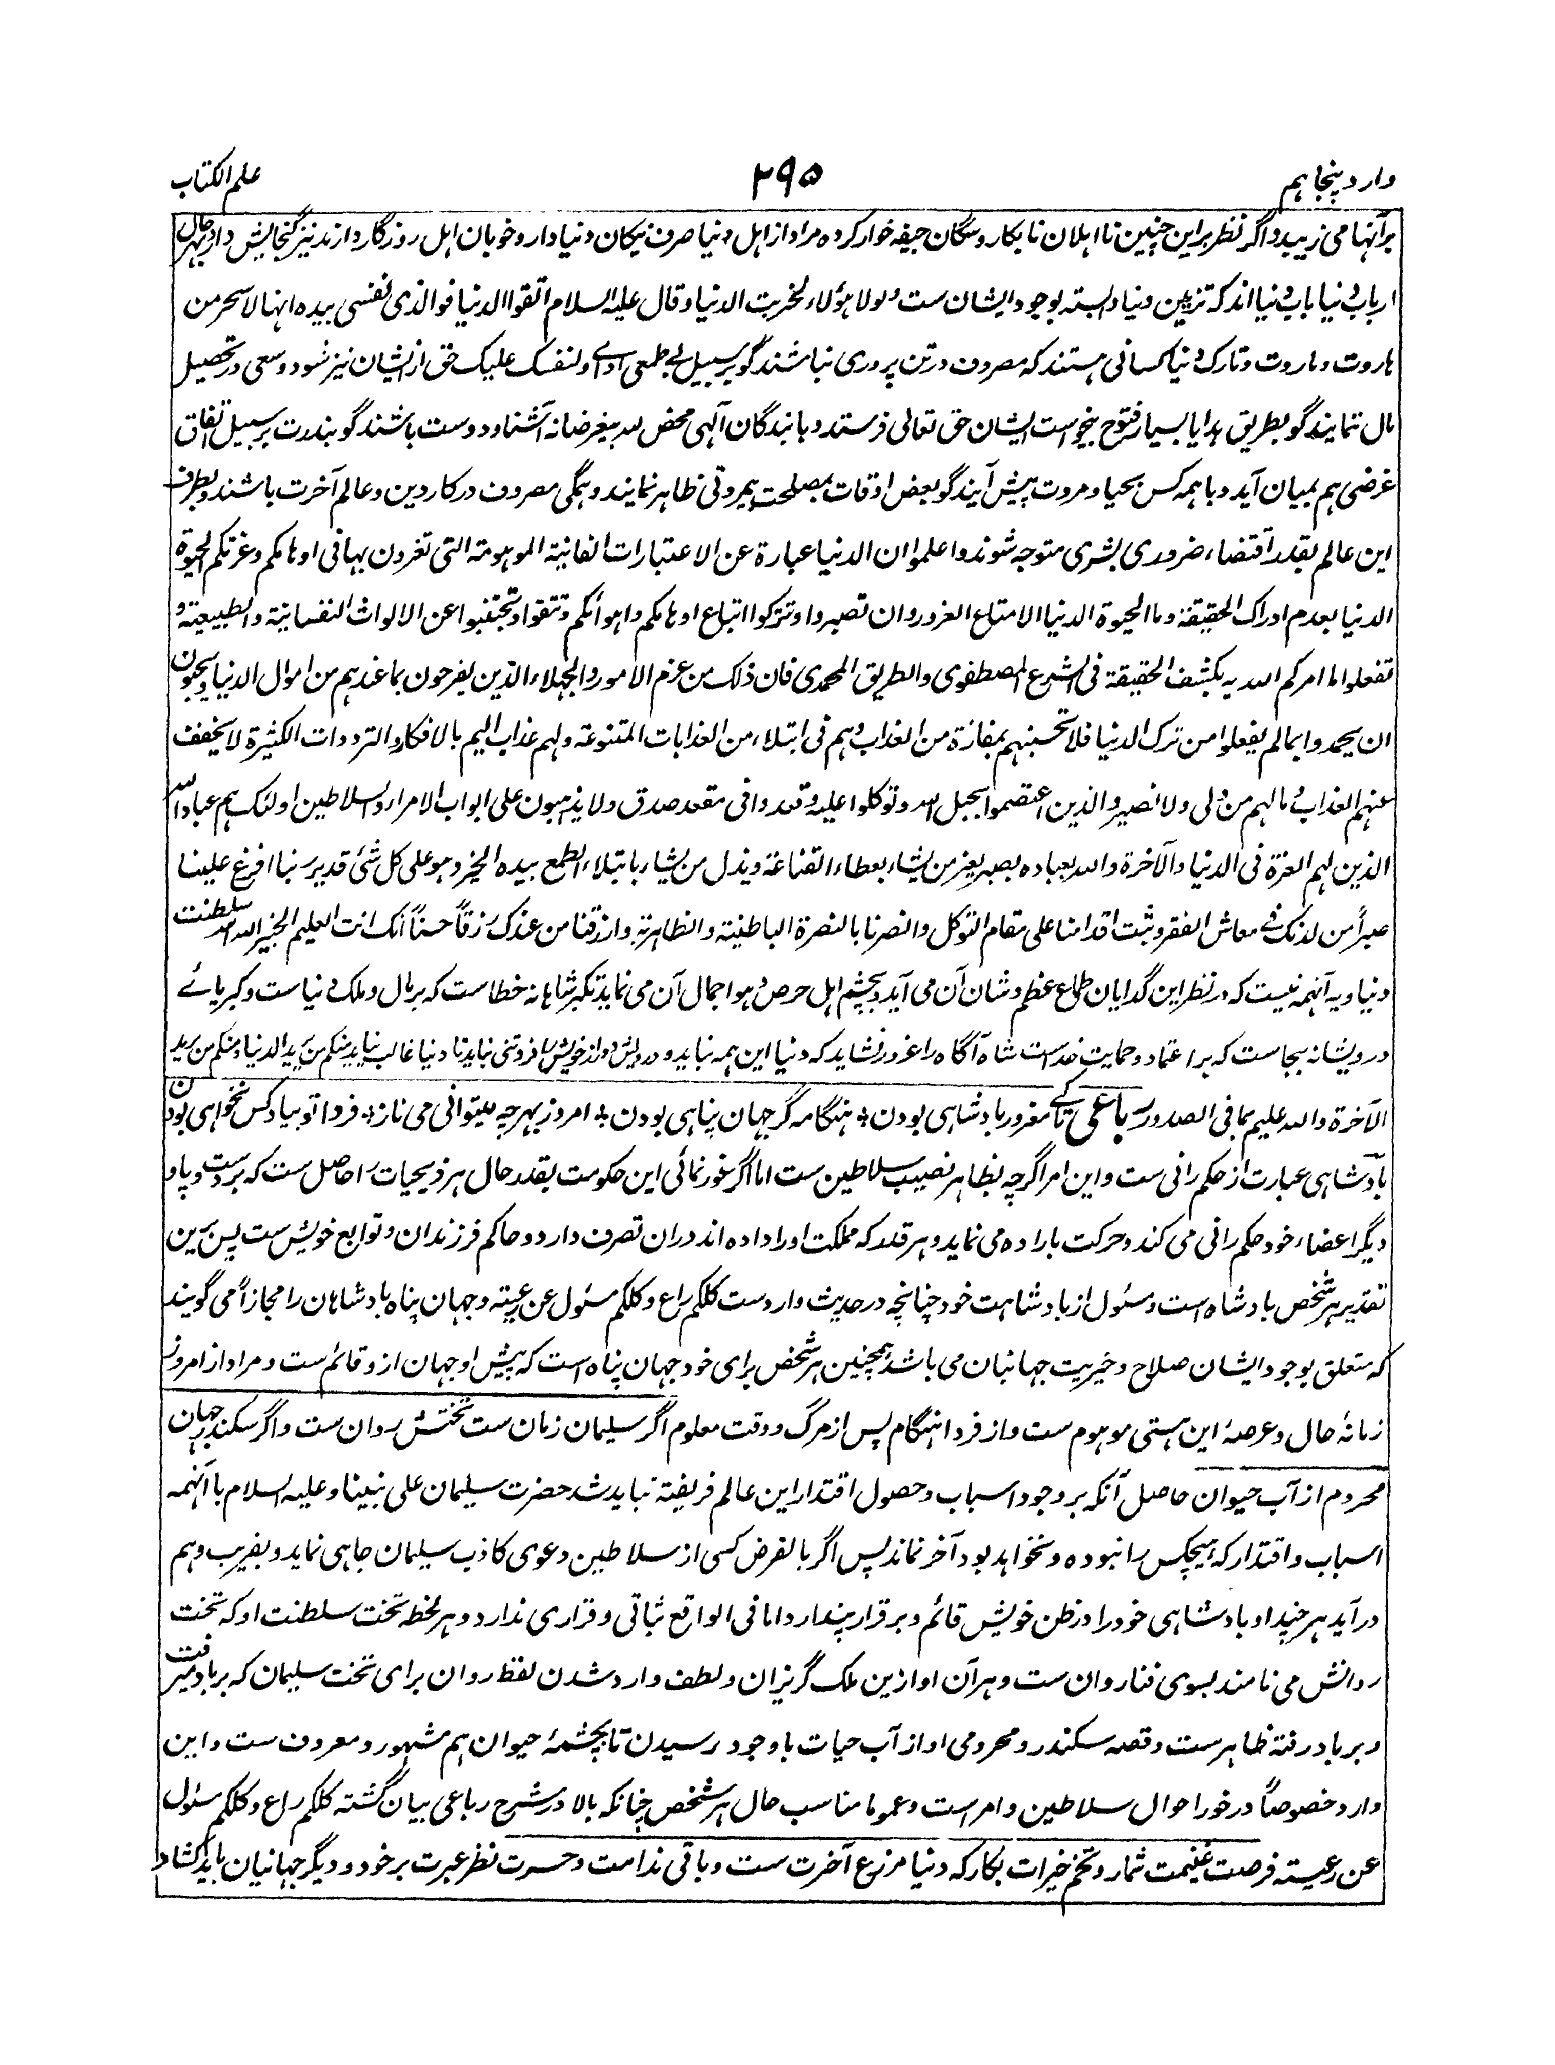 وارد پنجاهم ۲۹۵ علم الکتاب
برآنها می زیبد و اگر نظر براین چنین نا اهلان نابکار و سگان جیفه خوار کرده مراد از اهل دنیا صرف نیکان دنیادار و خوبان اهل روزگار دارند نیز گنجایش دارد بهر حال
ارباب دنیا باب دنیا اند که تزیین دنیا وابسته بوجود ایشان ست و لولا هؤلاء لخربت الدنیا و قال علیه السلام اتقوا الدنیا فوالذی نفسی بیده انها لاسحر من
هاروت و ماروت و تارک دنیا کسانی هستند که مصروف در تن پروری نباشند گو بر سبیل بے طمعی ادای و لنفسک علیک حق از ایشان نیز شود و سعی در تحصیل
مال ننمایند گو بطریق هدایا بسیار فتوح بیخواست ایشان حق تعالی فرستد و با بندگان آلهی محض لله بیغرضانه آشنا و دوست باشند گو بندرت بر سبیل اتفاق
غرضی هم بمیان آید و با همه کس بحیا و مروت پیش آیند گو بعض اوقات بمصلحت بیمروتی ظاهر نمایند و همگی مصروف در کار دین و عالم آخرت باشند و بطرف
این عالم بقدر اقتضاء ضروری بشری متوجه شوند و اعلموا ان الدنیا عبارة عن الاعتبارات الفانیة الموهومة التی تغرون بها فی اوهامکم و غرتکم الحیوة
الدنیا بعدم ادراک الحقیقة و ما الحیوة الدنیا الا متاع الغرور و ان تصبروا و تترکوا اتباع اوهامکم و اهوائکم و تتقوا و تجتنبوا عن الالواث النفسانیة و الطبیعیة و
تفعلوا ما امرکم الله به بکشف الحقیقة فی الشرع المصطفوی و الطریق المحمدی فان ذلک من عزم الامور و الجهلاء الذین یفرحون بما عندهم من اموال الدنیا و یحبون
ان یحمدوا بما لم یفعلوا من ترک الدنیا فلا تحسبنهم بمفازة من العذاب و هم فی ابتلاء من العذابات المتنوعة و لهم عذاب الیم بالافکار و الترددات الکثیرة لا یخفف
عنهم العذاب و ما لهم من ولی و لا نصیر و الذین اعتصموا بحبل الله و توکلوا علیه و قعدوا فی مقعد صدق و لا یذهبون علی ابواب الامراء و السلاطین اولئک هم عباد الله
الذین لهم العزة فی الدنیا و الآخرة و الله بعباده بصیر یعز من یشاء بعطاء القناعة و یذل من یشاء بابتلاء الطمع بیده الخیر و هو علی کل شئ قدیر ربنا افرغ علینا
صبراً من لدنک فی معاش الفقر و ثبت اقدامنا علی مقام التوکل و انصرنا بالنصرة الباطنیة و الظاهریة و ارزقنا من عندک رزقاً حسناً انک انت العلیم الخبیر الله الله سلطنت
دنیا و یه آنهمه نیست که در نظر این گدایان طماع عظم و شان آن می آید و بچشم اهل حرص و هوا جمال آن می نماید تکبر شاهانه خطاست که بر مال و ملک دنیاست و کبریائے
درویشانه بجاست که بر اعتماد و حمایت خداست شاه آگاه را غرور نشاید که دنیا این همه نباید و درویش را از خویش فروتنی نباید تا دنیا غالب نیاید منکم من یرید الدنیا و منکم من یرید
الآخرة و الله علیم بما فی الصدور رباعی تا کے مغرور بادشاهی بودن ٭ هنگامه گر جهان پناهی بودن ٭ امروز بهر چه میتوانی می ناز ٭ فردا تو بیاد کس نخواهی بودن
بادشاهی عبارت از حکم رانی ست و این امر اگرچه بظاهر نصیب سلاطین ست اما اگر غور نمائی این حکومت بقدر حال هر ذیحیات را حاصل ست که بر دست و پا و
دیگر اعضاء خود حکم رانی می کند و حرکت باراده می نماید و هر قدر که مملکت او را داده اند در ان تصرف دارد و حاکم فرزندان و توابع خویش ست پس برین
تقدیر هر شخص بادشاه است و مسئول از بادشاهت خود چنانچه در حدیث وارد ست کلکم راع و کلکم مسئول عن رعیته و جهان پناه بادشاهان را مجازاً می گویند
که متعلق بوجود ایشان صلاح و خیریت جهانبان می باشد همچنین هر شخص برای خود جهان پناه است که پیش او جهان از و قائم ست و مراد از امروز
زمانۀ حال و عرصۀ این هستی موهوم ست و از فردا هنگام پس از مرگ و وقت معلوم اگر سلیمان زمان ست تختش روان ست و اگر سکندر جهان
محروم از آب حیوان حاصل آنکه بر وجود اسباب و حصول اقتدار این عالم فریفته نباید شد حضرت سلیمان علی نبینا و علیه السلام با آنهمه
اسباب و اقتدار که هیچکس را نبوده و نخواهد بود آخر نماند پس اگر بالفرض کسی از سلاطین دعوی کاذب سلیمان جاهی نماید و بفریب وهم
درآید هرچند او بادشاهی خود را در ظن خویش قائم و برقرار پندارد اما فی الواقع ثباتی و قراری ندارد و هر لحظه تخت سلطنت او که تخت
روانش می نامند بسوی فنا روان ست و هر آن او ازین ملک گریزان و لطف وارد شدن لفظ روان برای تخت سلیمان که بر باد میرفت
و بر باد رفته ظاهرست و قصه سکندر و محرومی او از آب حیات با وجود رسیدن تا بچشمۀ حیوان هم مشهور و معروف ست و این
وارد خصوصاً درخور احوال سلاطین و امراست و عموما مناسب حال هر شخص چنانکه بالا در شرح رباعی بیان گشته کلکم راع و کلکم مسئول
عن رعیته فرصت غنیمت شمار و تخم خیرات بکار که دنیا مزرع آخرت ست و باقی ندامت و حسرت نظر عبرت بر خود و دیگر جهانیان باید کشاد